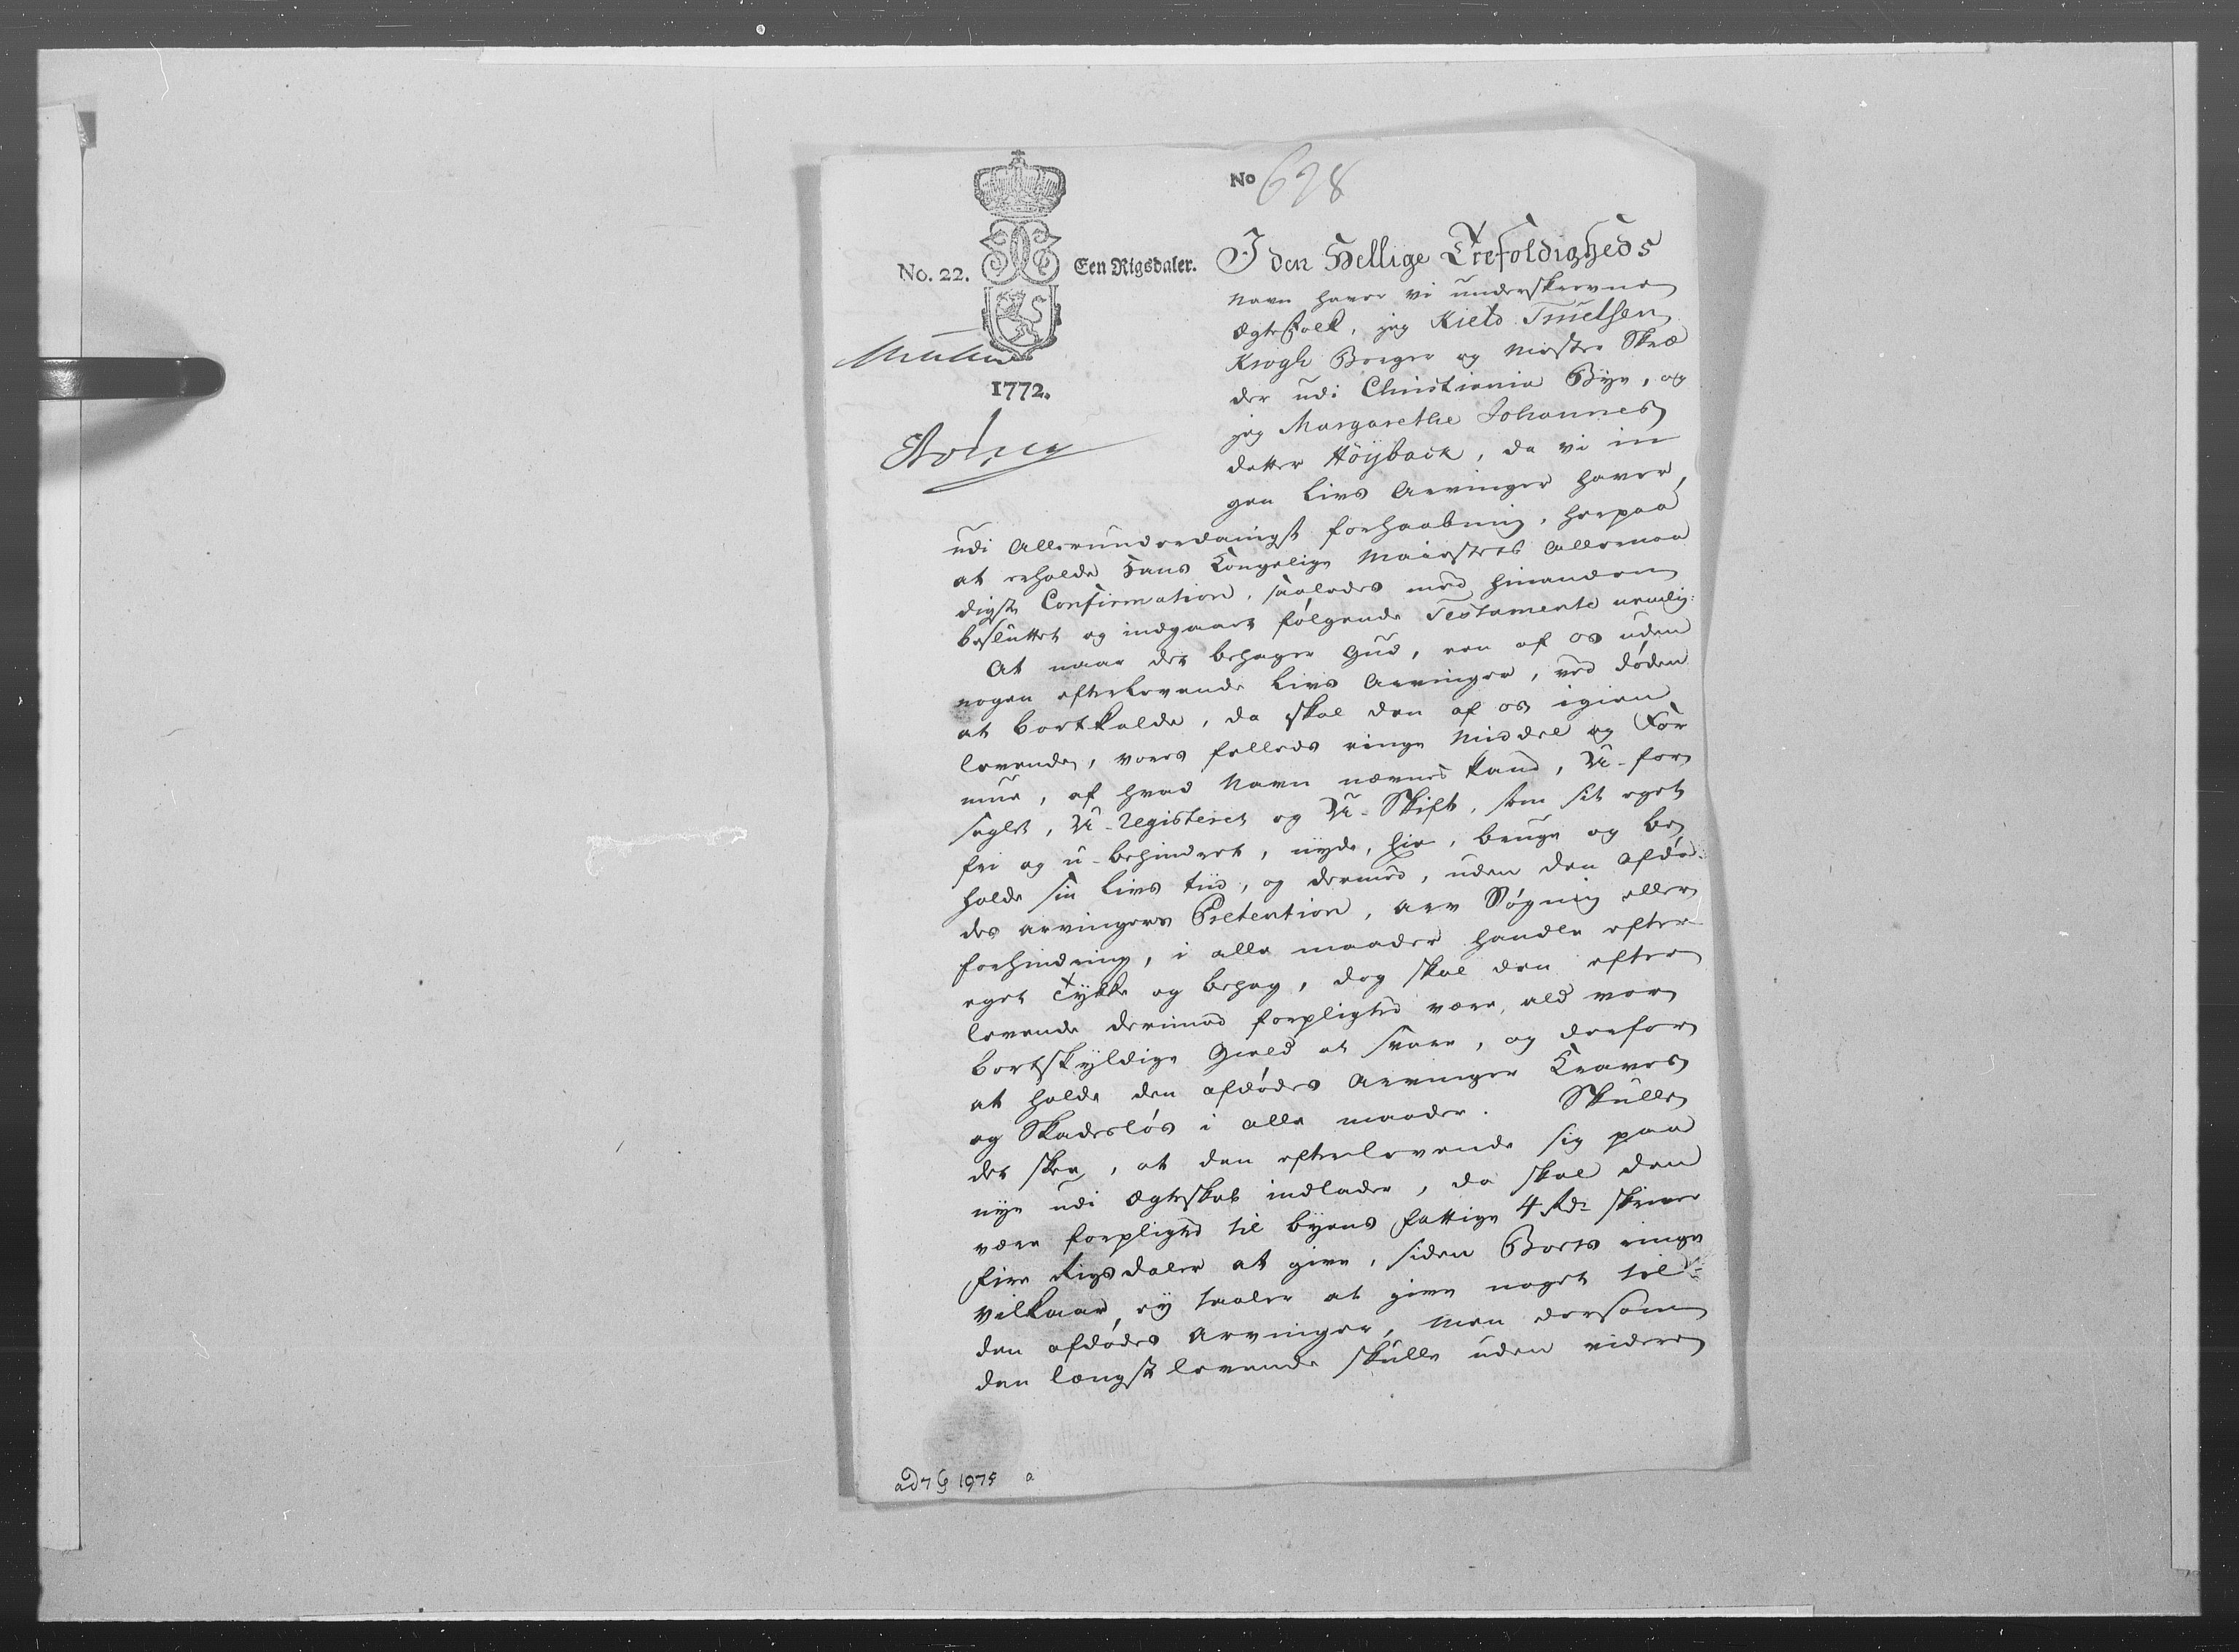 No 628
No. 22.
Een Rigsdaler.
1772.
I den Hellige Trefoldigheds
Navn haver vi underskrevne
Ægtefolk, jeg Kield Truelsen
Krogh Borger og Mester Skræ
der udi Christiania Bye, og
jeg Margarethe Johannes
datter Höyback, da vi in
gen Livs Arvinger haver,
udi Allerunderdanigst forhaabning, herpaa
at erholde Hans Kongelige Maiestets Allernaa
digste Confirmation, saaledes med hinanden
besluttet og indgaaet følgende Testamente nemlig:
At naar det behager Gud, een af os uden
nogen efterlevende Livs Arvinger, ved døden
at bortkalde, da skal den af os igien
levende, vores fælleds ringe Middel og For
mue, af hvad Navn nævnes kand, U-for
seglet, U-Registeret og U-Skift, som sit eget
fri og u-behindret, nyde, eie, bruge og be
holde sin Livs tiid, og dermed, uden den afdø-
des arvingers Pretention, arv Søgning eller
forhindring, i alle maader handle efter
eget Tykke og behag, dog skal den efter
levende derimod forpligted være, ald vor
bortskyldige Gield at svare, og derfor
at holde den afdødes Arvinger Kraves
og Skadesløs i alle maader. Skulle
det skee, at den efterlevende sig paa
nye udi Ægteskab indlader, da skal den
være forpligted til byens fattige 4 Rdr skriver
fire Rigsdaler at give, siden Vores ringe
vilkaar ey taaler at give noget til
den afdødes Arvinger, Men dersom
den længst levende skulle uden videre
ad 7 G 1975 a